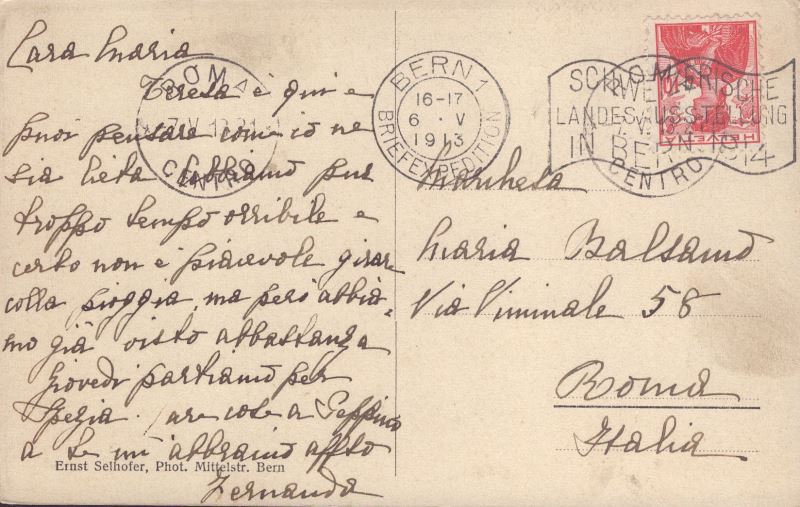 Cara Maria
Teresa è qui e
puoi pensare com'io ne
sia lieta. Abbiamo pur
troppo tempo orribile e
certo non è piacevole girare
colla pioggia, ma però abbia-
mo già visto abbastanza
Giovedì partiamo per
Spezia. care cose a Peppino
a te un abbraccio affto
Fernanda
Ernst Selhofer, Phot. Mittelstr. Bern
ROMA
CENTRO
BERN 1
16-17
6 · V
1913
BRIEFEXPEDITION
SCHWEIZERISCHE
LANDES AUSSTELLUNG
IN BERN 1914
ROMA
CENTRO
HELVETIA
10
Marchesa
Maria Balsamo
Via Viminale 58
Roma
Italia